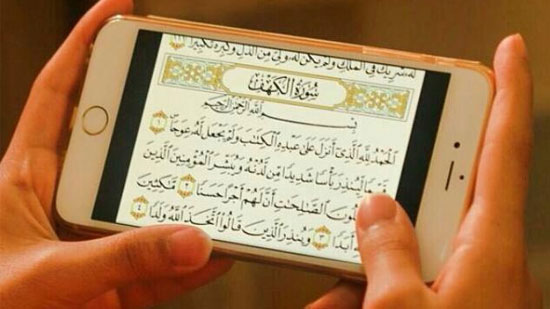 لَّهُۥ شَرِيكٌ فِي ٱلۡمُلۡكِ وَلَمۡ يَكُن لَّهُۥ وَلِيٌّ مِّنَ ٱلذُّلِّۖ وَكَبِّرۡهُ تَكۡبِيرَۢا
سُورَةُ الكَهۡفِ
بِسۡمِ ٱللَّهِ ٱلرَّحۡمَٰنِ ٱلرَّحِيمِ
ٱلۡحَمۡدُ لِلَّهِ ٱلَّذِيٓ أَنزَلَ عَلَىٰ عَبۡدِهِ ٱلۡكِتَٰبَ وَلَمۡ يَجۡعَل لَّهُۥ عِوَجَاۜ ١
قَيِّمٗا لِّيُنذِرَ بَأۡسٗا شَدِيدٗا مِّن لَّدُنۡهُ وَيُبَشِّرَ ٱلۡمُؤۡمِنِينَ ٱلَّذِينَ
ٱلصَّٰلِحَٰتِ أَنَّ لَهُمۡ أَجۡرًا حَسَنٗا ٢ مَّٰكِثِينَ
أَبَدٗا ٣ وَيُنذِرَ ٱلَّذِينَ قَالُواْ ٱتَّخَذَ ٱللَّهُ وَلَدٗا ٤